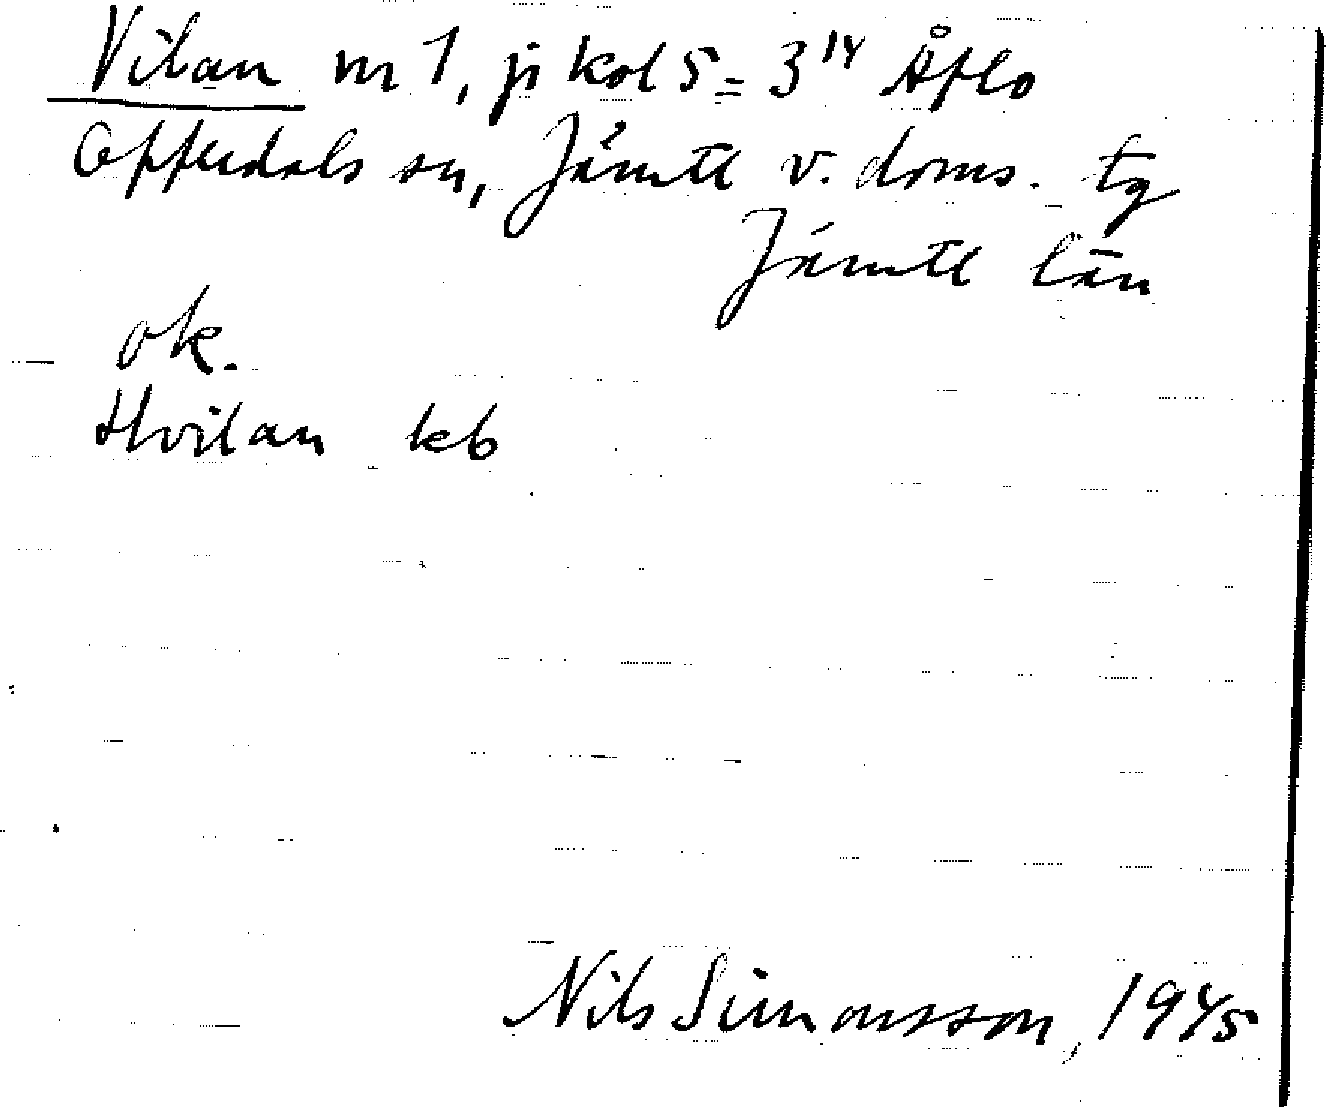 Vilan nr 1, ji kol 5 = 3¹⁴ Åflo
Offerdals sn, Jämtl v. doms. tg
Jämtl län
ok.
Hvilan kb
Nils Simonsson, 1945